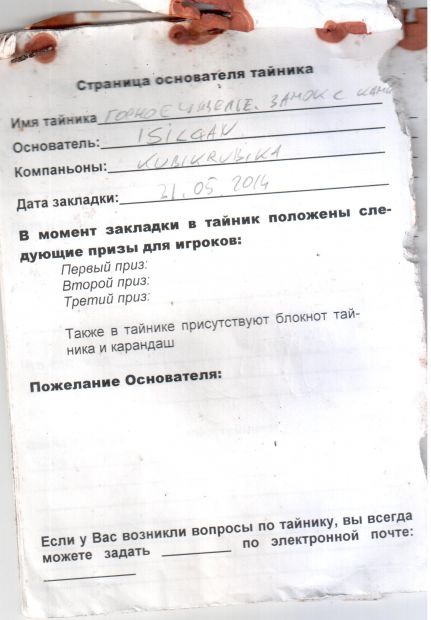 Страница основателя тайника
Имя тайника ГОРНОЕ УЩЕЛЬЕ. ЗАМОК С
Основатель: ISILGAV
Компаньоны: KUBIKRUBIKA
Дата закладки: 31.05.2014
В момент закладки в тайник положены сле-
дующие призы для игроков:
Первый приз:
Второй приз:
Третий приз:
Также в тайнике присутствуют блокнот тай-
ника и карандаш
Пожелание Основателя:
Если у Вас возникли вопросы по тайнику, вы всегда
можете задать ________ по электронной почте:
________